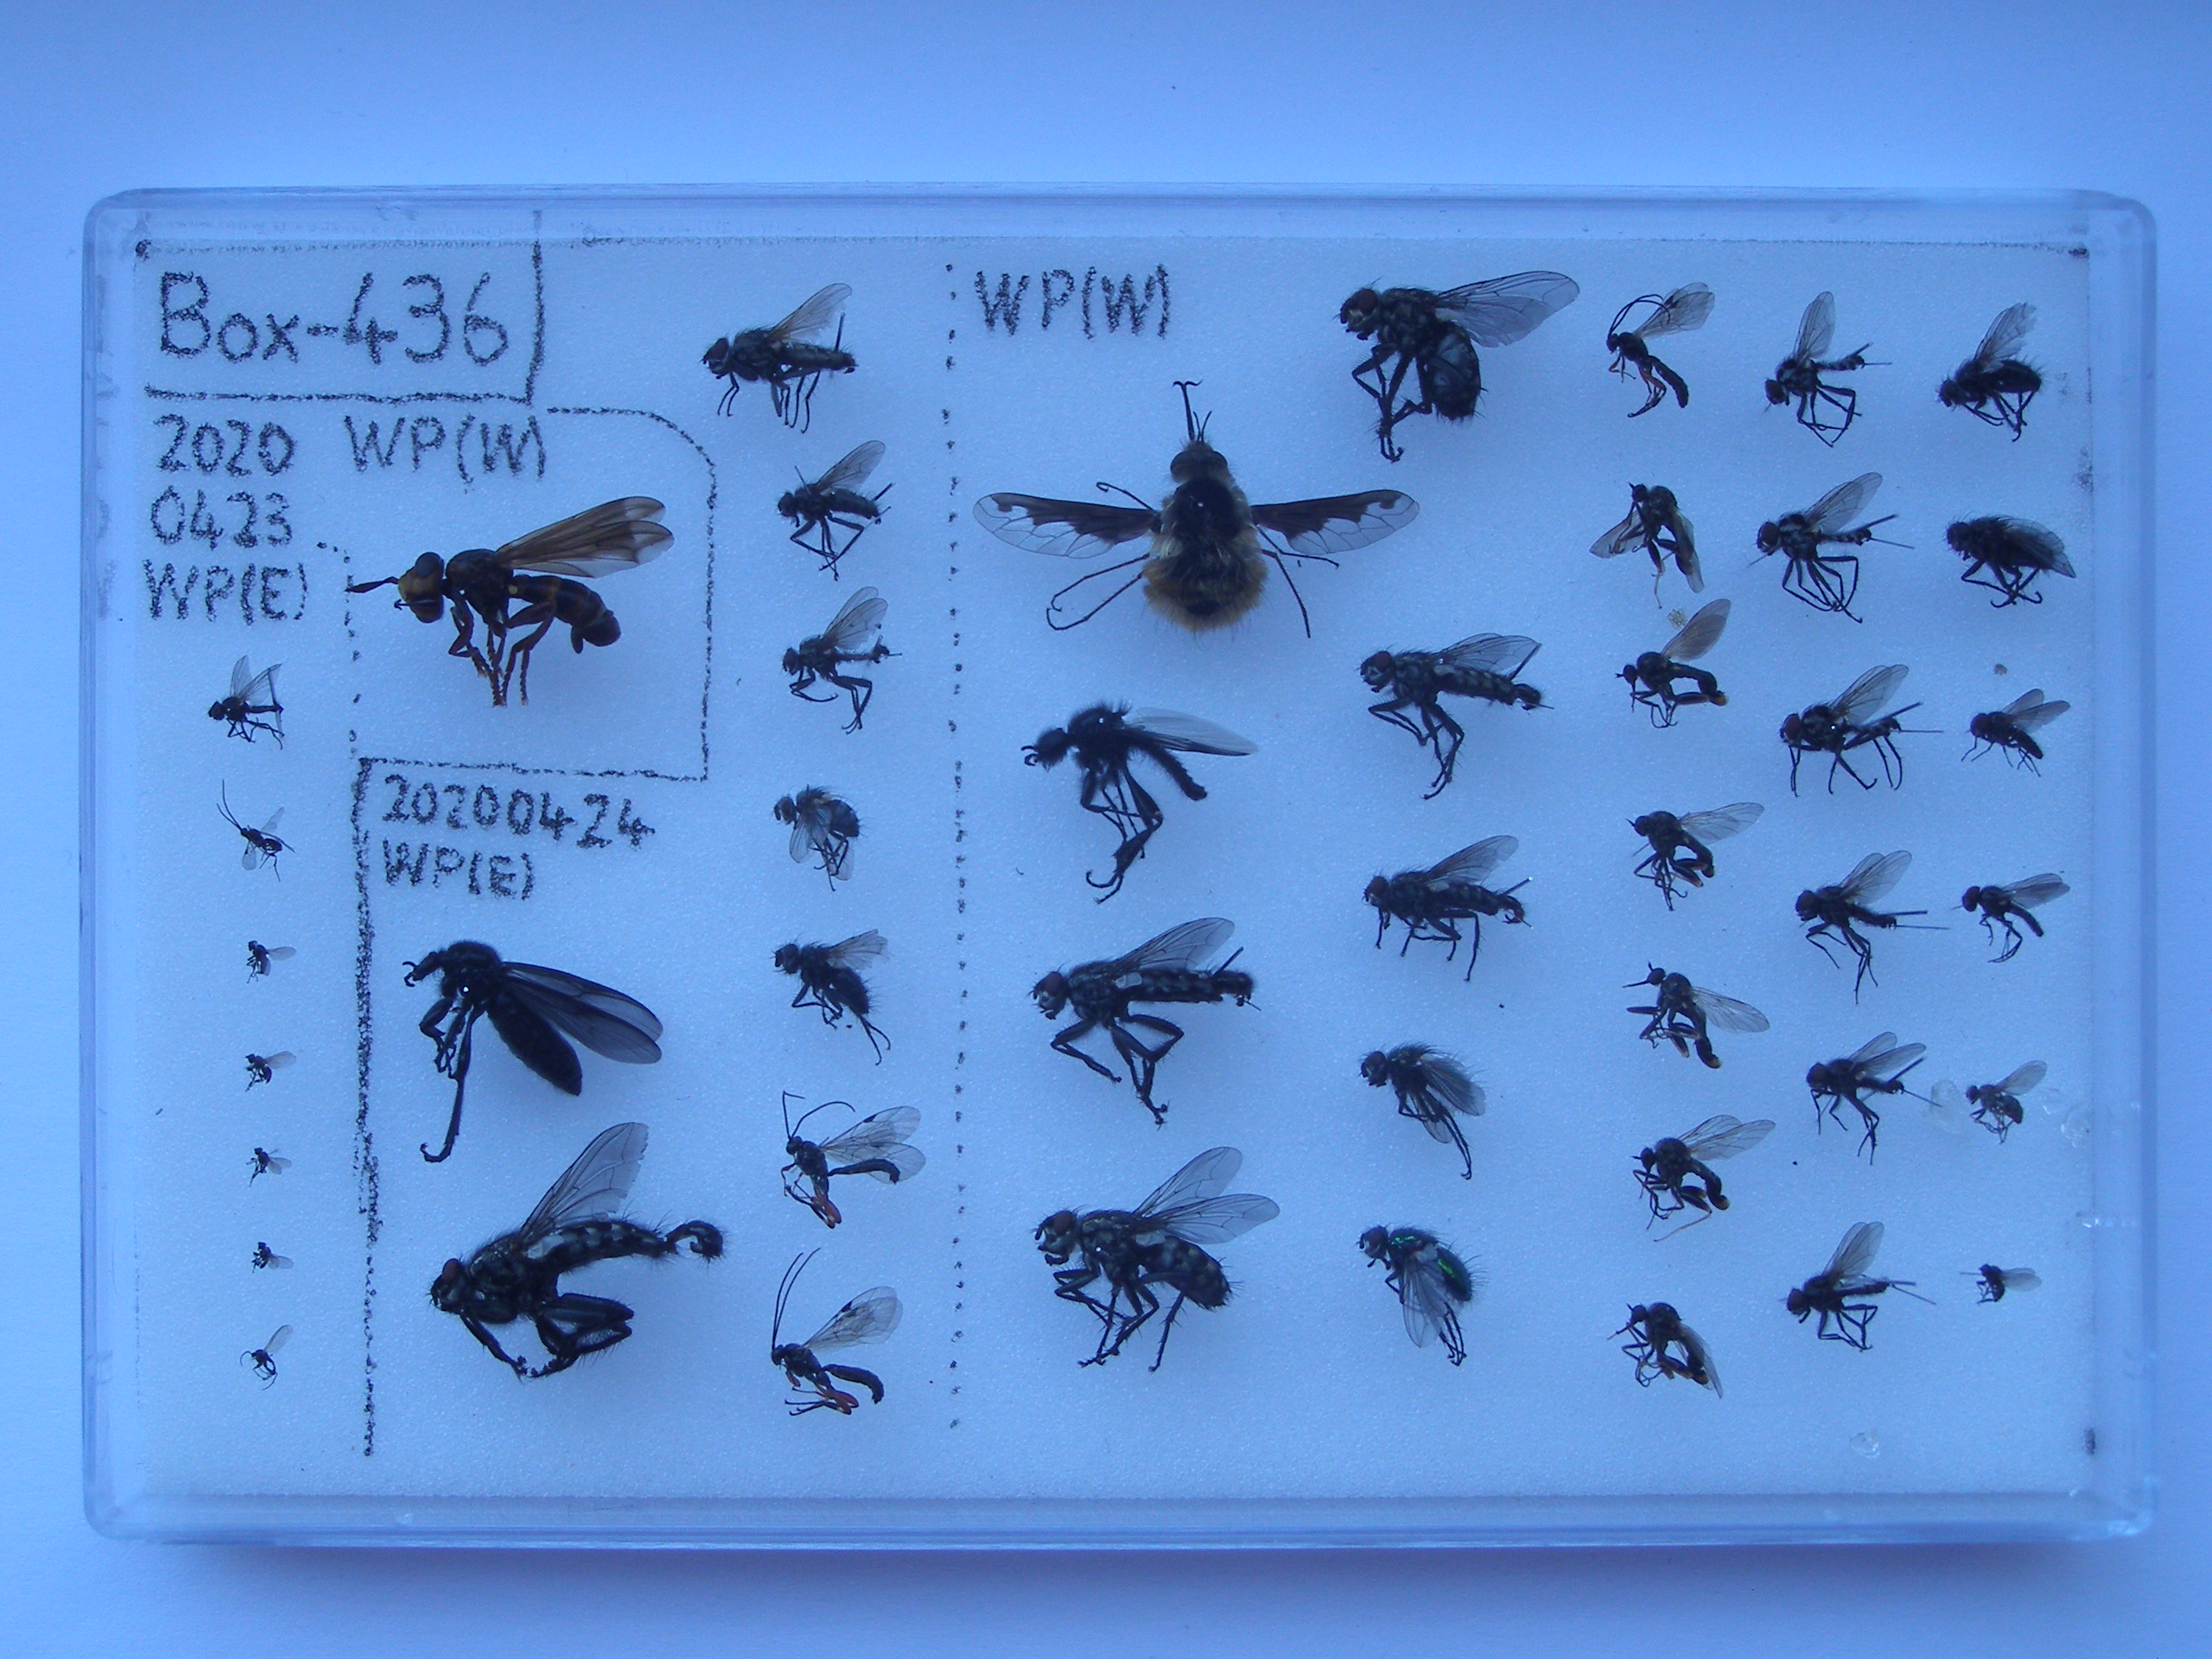 Box-436
2020 WP(W)
0423
WP(E)
20200424
WP(E)
WP(W)